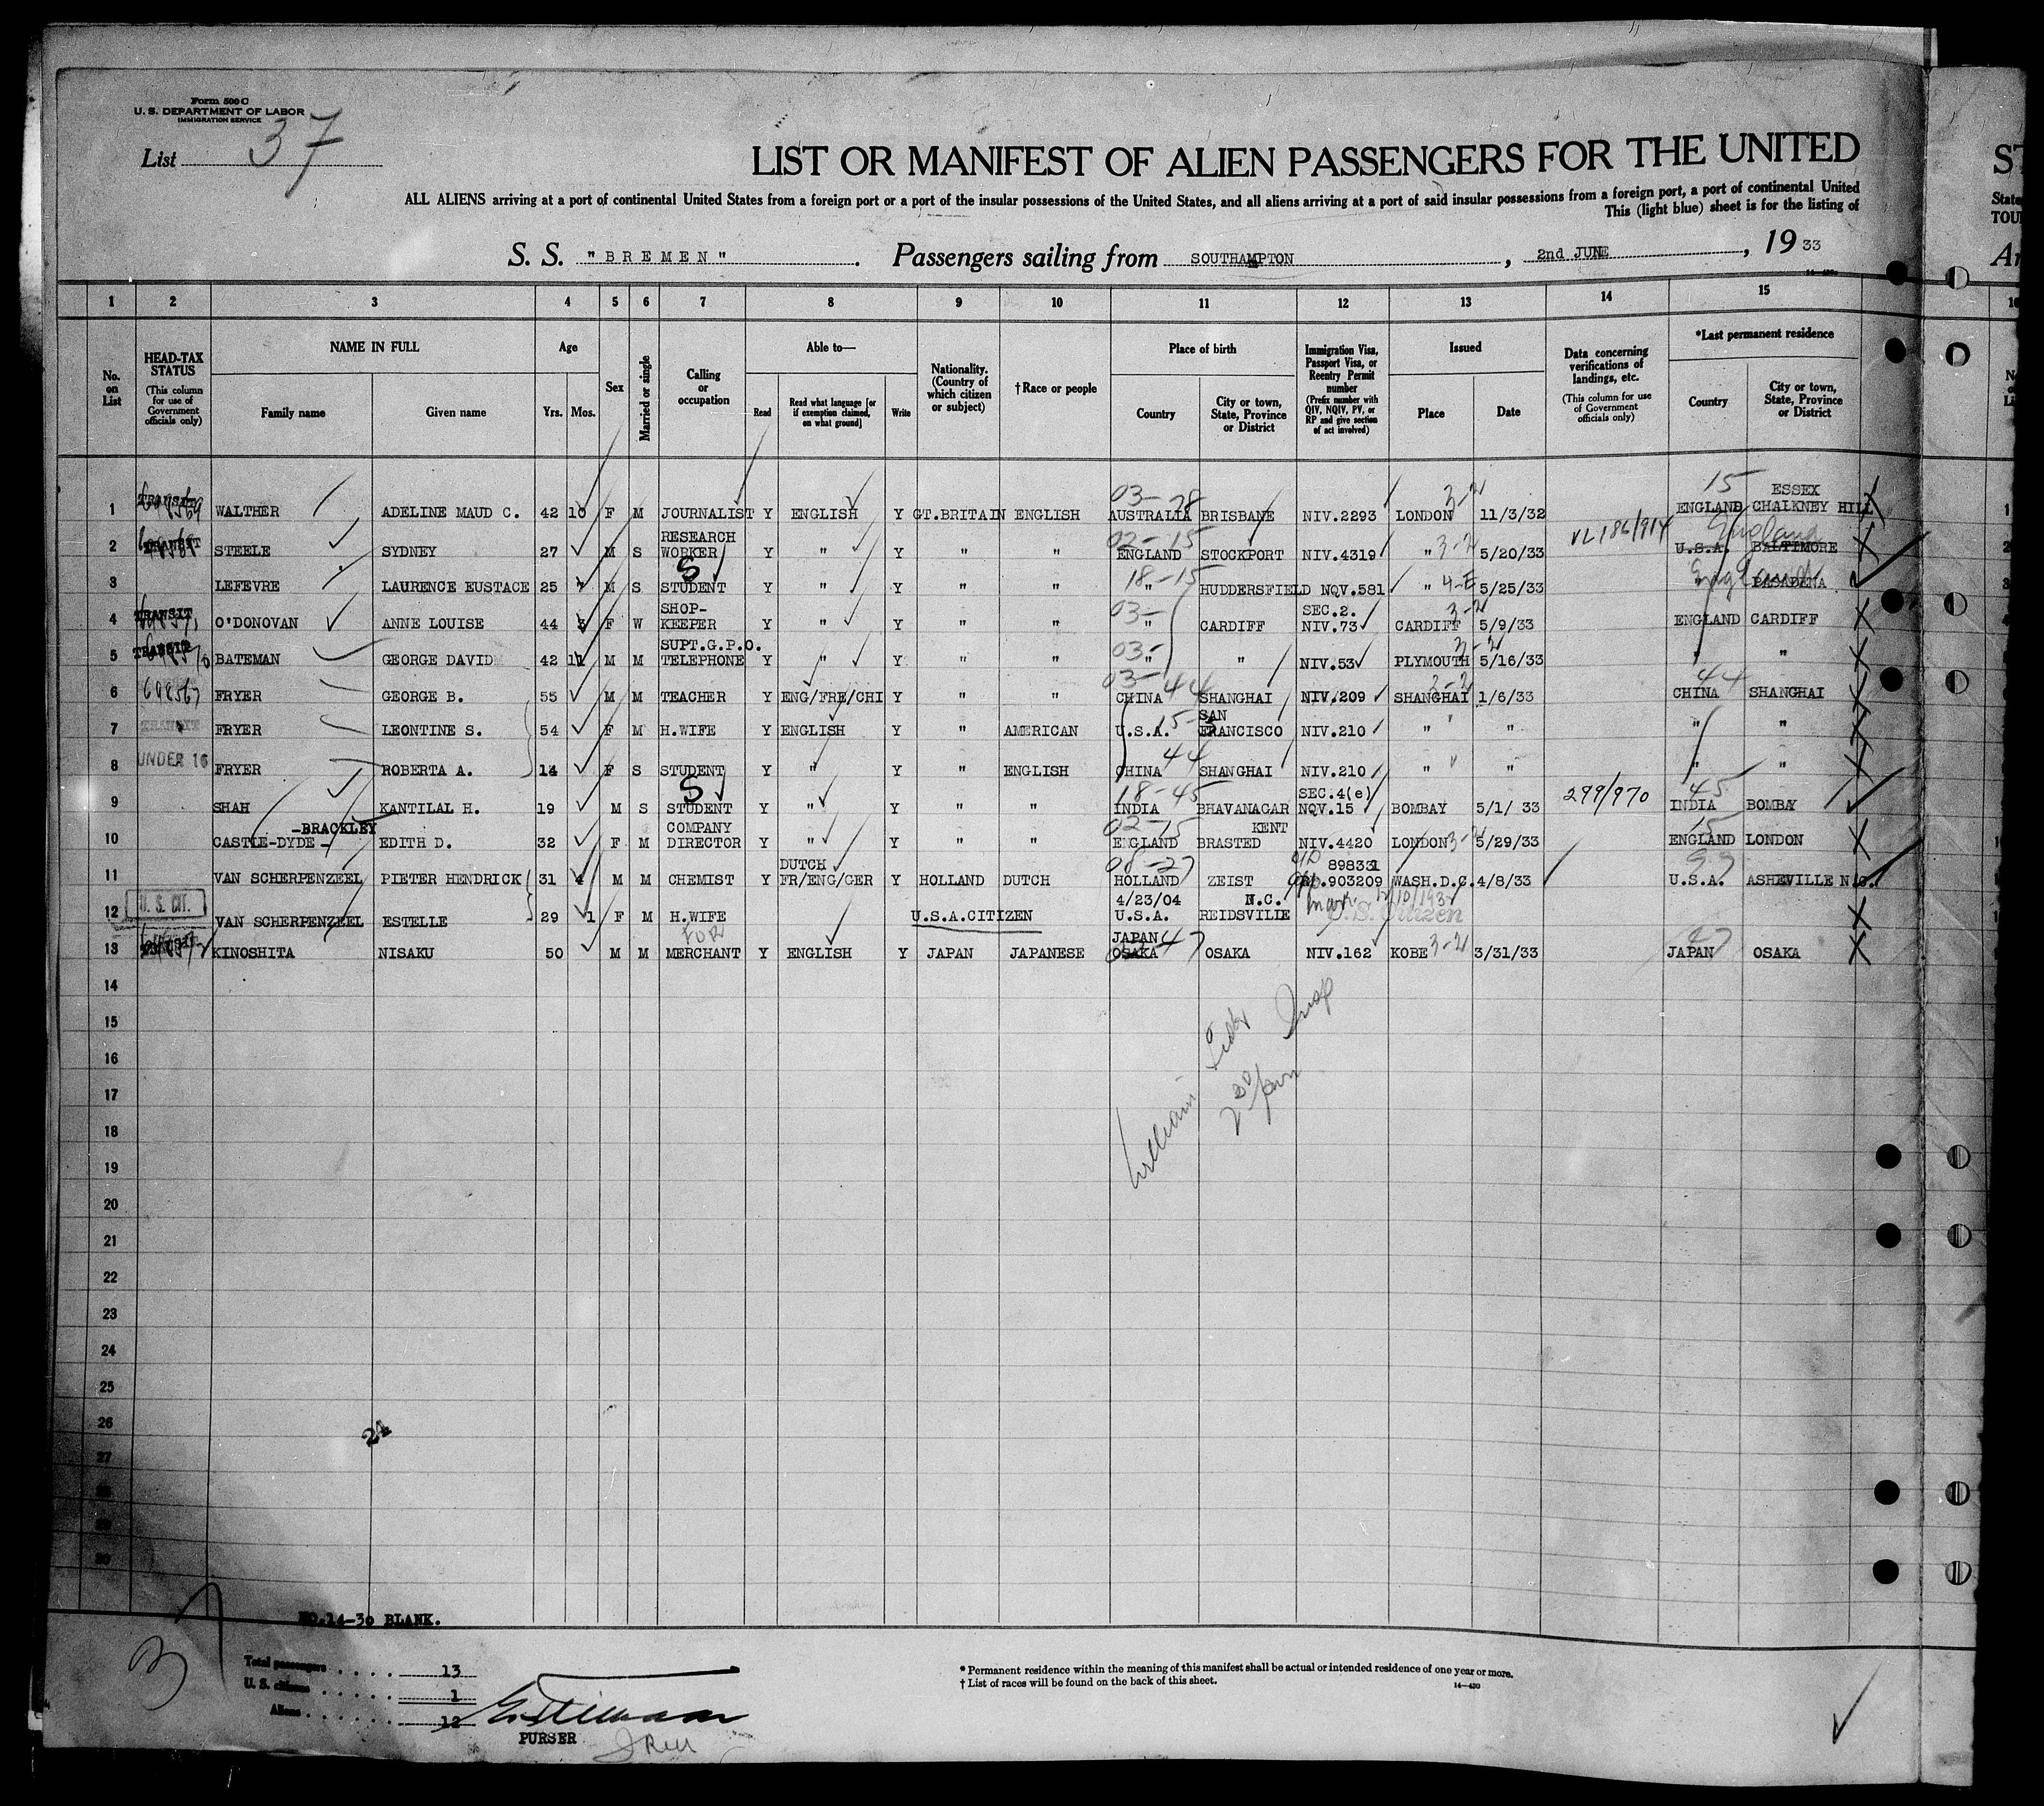 Form 500 C
U. S. DEPARTMENT OF LABOR
IMMIGRATION SERVICE
List 37
LIST OR MANIFEST OF ALIEN PASSENGERS FOR THE UNITED
ALL ALIENS arriving at a port of continental United States from a foreign port or a port of the insular possessions of the United States, and all aliens arriving at a port of said insular possessions from a foreign port, a port of continental United
This (light blue) sheet is for the listing of
S. S. "BREMEN". Passengers sailing from SOUTHAMPTON, 2nd JUNE, 1933
1 2 3 4 5 6 7 8 9 10 11 12 13 14 15
No. on List
HEAD-TAX STATUS (This column for use of Government officials only)
NAME IN FULL
Family name Given name
Age
Yrs. Mos.
Sex
Married or single
Calling or occupation
Able to—
Read Read what language [or if exemption claimed, on what ground] Write
Nationality. (Country of which citizen or subject)
† Race or people
Place of birth
Country City or town, State, Province or District
Immigration Visa, Passport Visa, or Reentry Permit number (Prefix number with QIV, NQIV, PV, or RP and give section of act involved)
Issued
Place Date
Data concerning verifications of landings, etc. (This column for use of Government officials only)
*Last permanent residence
Country City or town, State, Province or District
1 TRANSIT WALTHER ADELINE MAUD C. 42 10 F M JOURNALIST Y ENGLISH Y GT.BRITAIN ENGLISH 03-78 AUSTRALIA BRISBANE NIV.2293 LONDON 3-2 11/3/32 15 ENGLAND ESSEX CHALKNEY HILL
2 TRANSIT STEELE SYDNEY 27 M S RESEARCH WORKER Y " Y " " 02-15 ENGLAND STOCKPORT NIV.4319 " 3-2 5/20/33 VL186/914 England U.S.A. BALTIMORE
3 LEFEVRE LAURENCE EUSTACE 25 M S S STUDENT Y " Y " " 18-15 " HUDDERSFIELD NQV.581 " 4-E 5/25/33 England PASADENA
4 TRANSIT O'DONOVAN ANNE LOUISE 44 F W SHOP-KEEPER Y " Y " " 03- " CARDIFF SEC.2. NIV.73 CARDIFF 3-2 5/9/33 ENGLAND CARDIFF
5 TRANSIT BATEMAN GEORGE DAVID 42 11 M M SUPT.G.P.O. TELEPHONE Y " Y " " 03- " " NIV.53 PLYMOUTH 3-2 5/16/33 " "
6 698567 FRYER GEORGE B. 55 M M TEACHER Y ENG/FRE/CHI Y " " 03-44 CHINA SHANGHAI NIV.209 SHANGHAI 3-2 1/6/33 44 CHINA SHANGHAI
7 TRANSIT FRYER LEONTINE S. 54 F M H.WIFE Y ENGLISH Y " AMERICAN 15- U.S.A. SAN FRANCISCO NIV.210 " " " "
8 UNDER 16 FRYER ROBERTA A. 14 F S STUDENT Y " Y " ENGLISH 44 CHINA SHANGHAI NIV.210 " " " "
9 SHAH KANTILAL H. 19 M S S STUDENT Y " Y " " 18-45 INDIA BHAVANAGAR SEC.4(e) NQV.15 BOMBAY 5/1/ 33 299/970 45 INDIA BOMBAY
10 CASTLE-DYDE- -BRACKLEY EDITH D. 32 F M COMPANY DIRECTOR Y " Y " " 02-15 ENGLAND KENT BRASTED NIV.4420 LONDON 3-2 5/29/33 15 ENGLAND LONDON
11 VAN SCHERPENZEEL PIETER HENDRICK 31 M M CHEMIST Y DUTCH FR/ENG/GER Y HOLLAND DUTCH 08-27 HOLLAND ZEIST 898331 .903209 WASH.D.C. 4/8/33 99 U.S.A. ASHEVILLE N.C.
12 U. S. CIT. VAN SCHERPENZEEL ESTELLE 29 1 F M H.WIFE U.S.A.CITIZEN 4/23/04 U.S.A. N.C. REIDSVILLE U.S. Citizen
13 KINOSHITA NISAKU 50 M M FOR MERCHANT Y ENGLISH Y JAPAN JAPANESE JAPAN 47 OSAKA OSAKA NIV.162 KOBE 3-2 3/31/33 47 JAPAN OSAKA
14
15
16
17
18
19
20
21
22
23
24
25
26
27
28
29
30
William
Insp
24
NO.14-30 BLANK.
37
Total passengers 13
U. S. citizens 1
Aliens 12
PURSER
* Permanent residence within the meaning of this manifest shall be actual or intended residence of one year or more.
† List of races will be found on the back of this sheet.
14—430